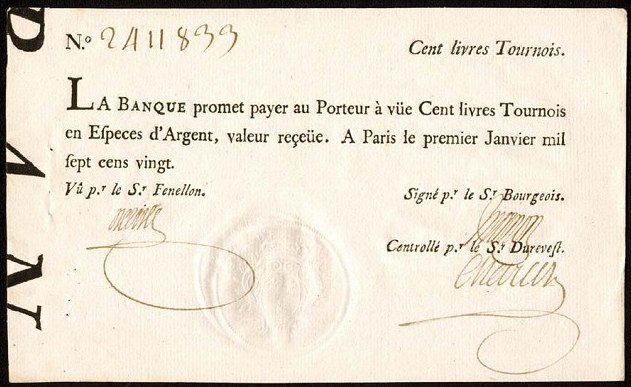 N.º 2411833 Cent livres Tournois.
LA BANQUE promet payer au Porteur à vüe Cent livres Tournois
en Eſpeces d'Argent, valeur reçeüe. A Paris le premier Janvier mil
ſept cens vingt.
Vû p.r le S.r Fenellon. Signé p.r le S.r Bourgeois.
Controllé p.r le S.r Dureveſt.